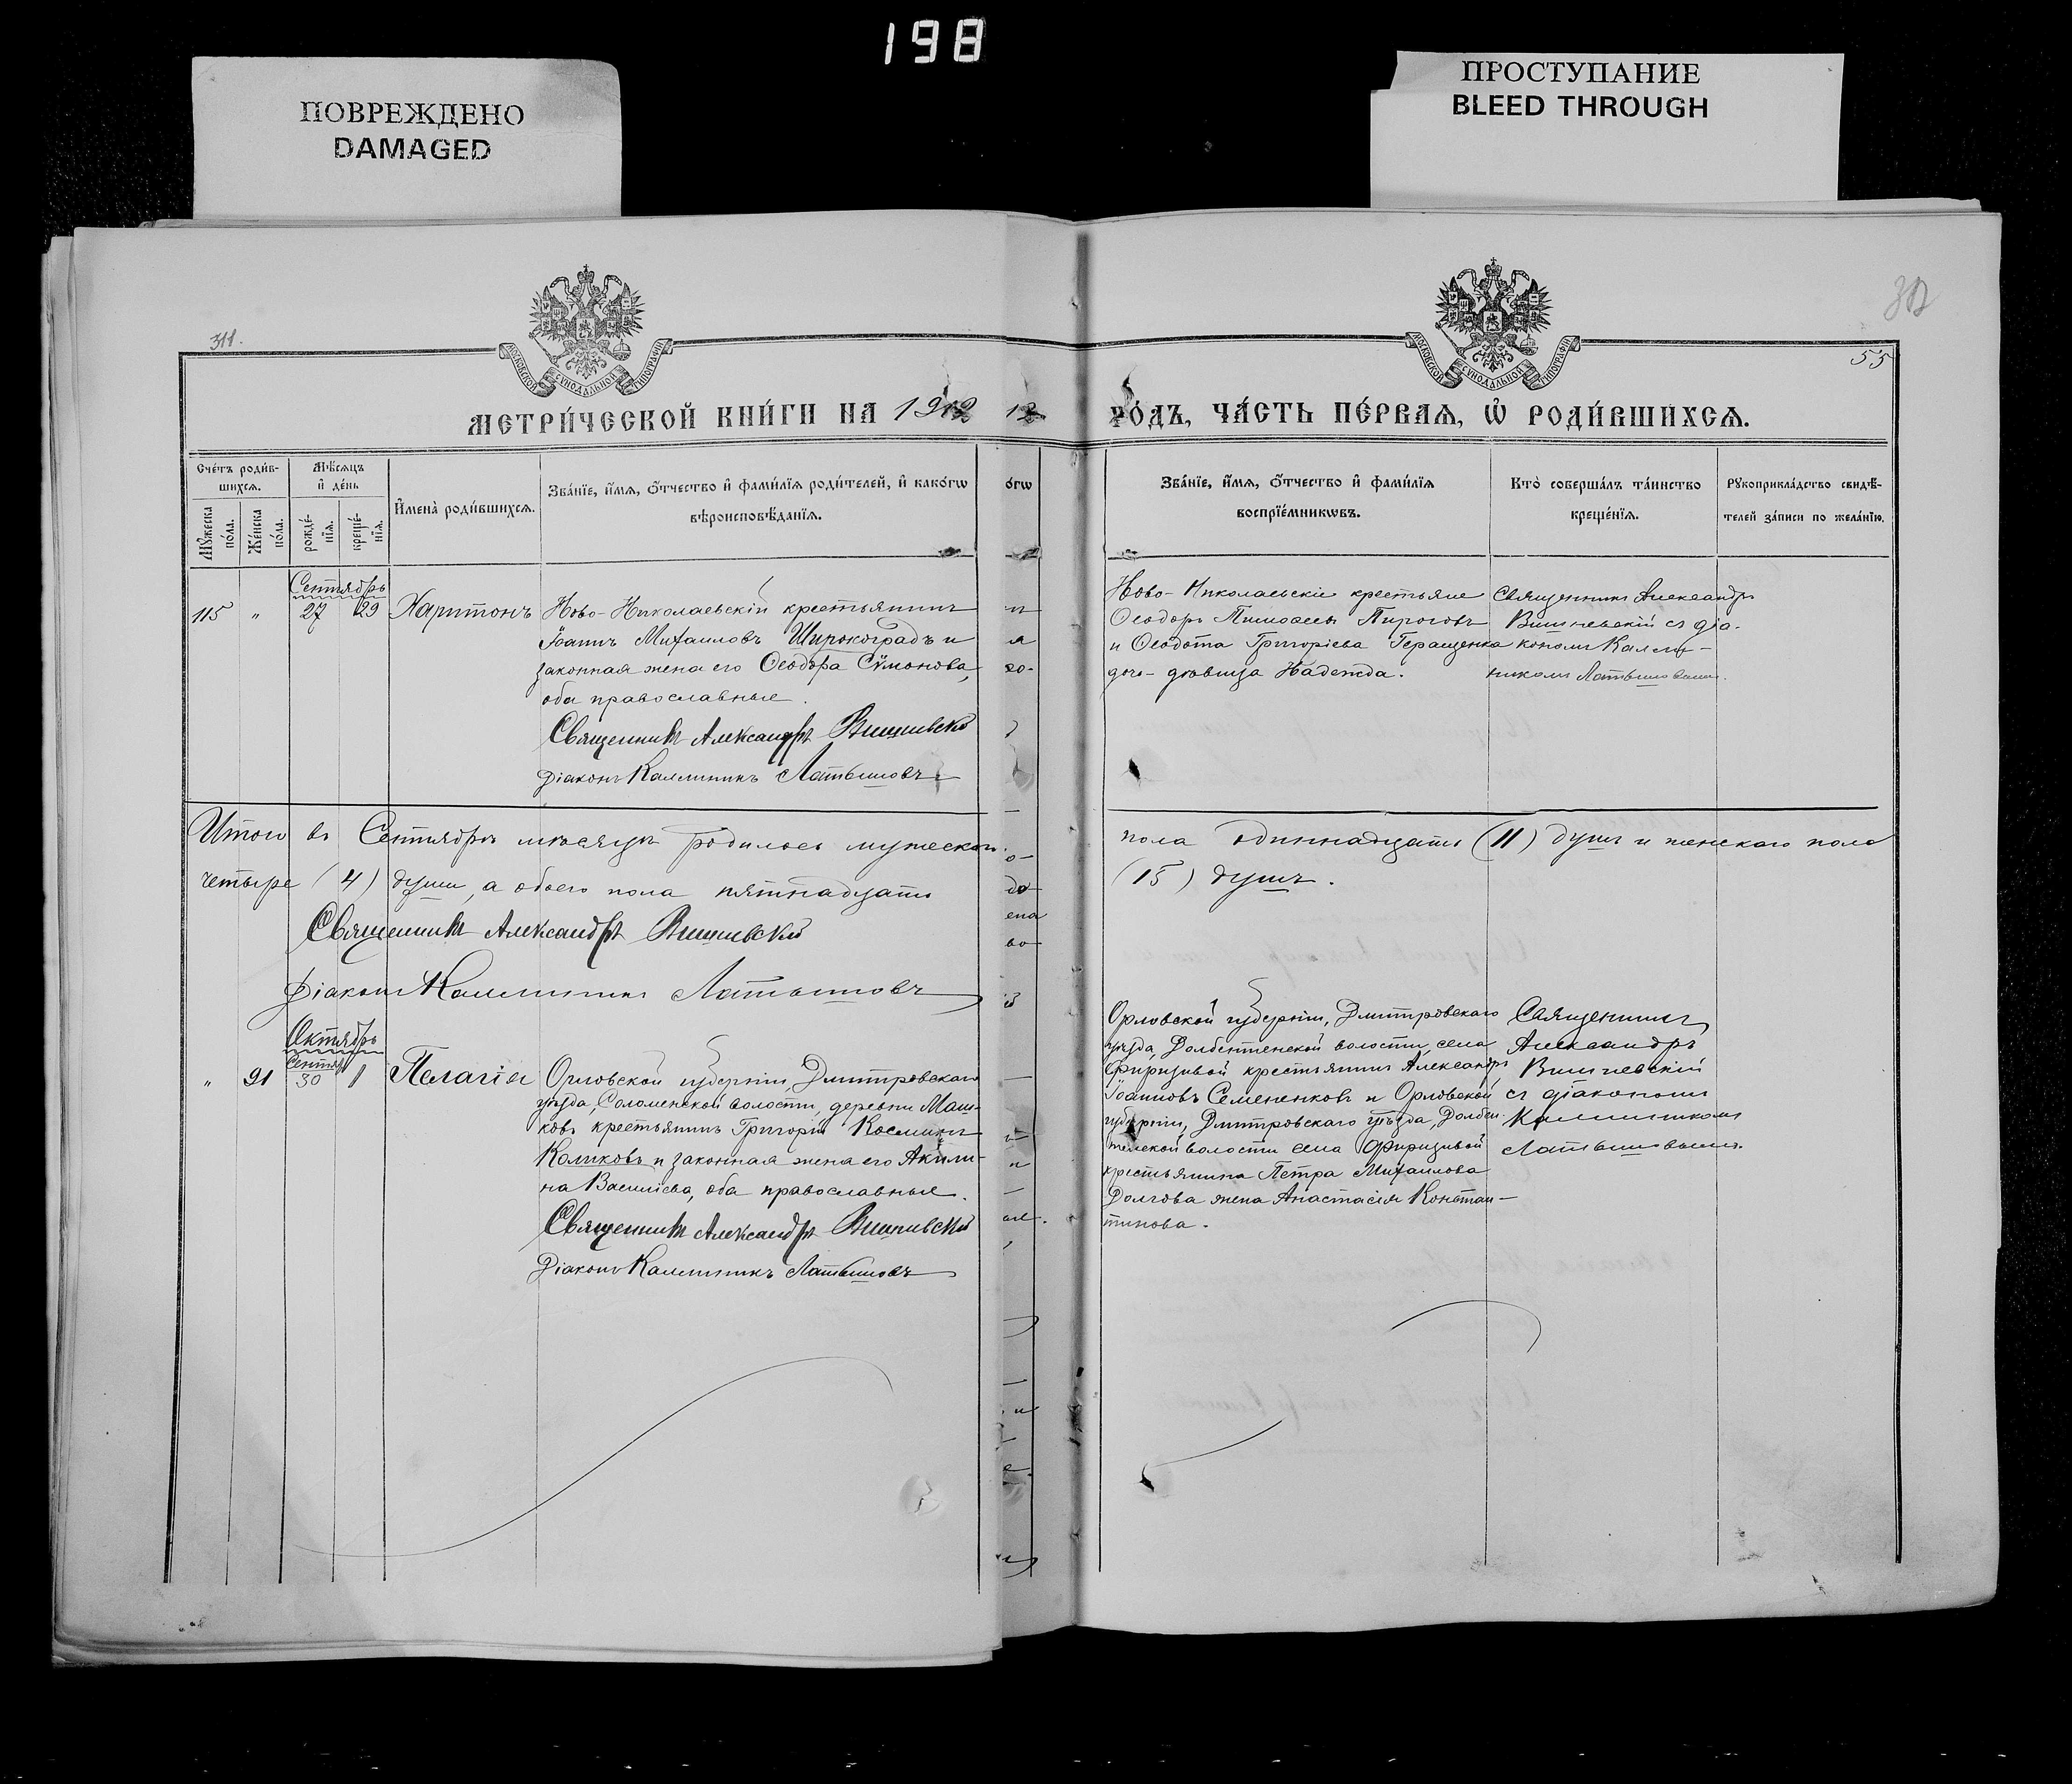 198
ПОВРЕЖДЕНО
DAMAGED
ПРОСТУПАНИЕ
BLEED THROUGH
311.
312
55
МОСКОВСКОЙ СѴНОДАЛЬНОЙ ТИПОГРАФІИ
МОСКОВСКОЙ СѴНОДАЛЬНОЙ ТИПОГРАФІИ
МЕТРИ́ЧЕСКОЙ КНИ́ГИ НА 1912
12
ГО́ДЪ, ЧА́СТЬ ПЕ́РВАѦ, Ѽ РОДИ́ВШИХСѦ.
Счéтъ роди́в-
шихсѧ.
Мꙋжеска по́ла.
Же́нска по́ла.
Мѣ́сѧцъ
и҆ де́нь
рожде́-
нїѧ.
креще́-
нїѧ.
И҆мена̀ роди́вшихсѧ.
Зва́нїе, и҆́мѧ, ѻ҆́тчество и҆ фами́лїѧ роди́телей, и҆ како́гѡ
вѣроисповѣ́данїѧ.
о́гѡ
Зва́нїе, и҆́мѧ, ѻ҆́тчество и҆ фами́лїѧ
воспрїе́мникѡвъ.
Кто̀ соверша́лъ та́инство
креще́нїѧ.
Рꙋкоприкла́дство свидѣ́-
телей за́писи по жела́нїю.
Сентябрь
115 " 27 29 Харитонъ
Ново-Николаевскій крестьянинъ
Іоаннъ Михаиловъ Широкоградъ и
законная жена его Ѳеодора Сѵмонова,
оба православные.
Священникъ Александръ Вишневскій
Діаконъ Каллиникъ Латышовъ
Ново-Николаевскіе крестьяне
Ѳеодоръ Тимоѳеевъ Пироговъ
и Ѳеодота Григоріева Геращенка
дочь-дѣвица Надежда.
Священникъ Александръ
Вишневскій съ діа-
кономъ Калли-
никомъ Латышовымъ.
Итого въ Сентябрѣ мѣсяцѣ родилось мужеского
пола одиннадцать (11) душъ и женскаго пола
четыре (4) души, а обоего пола пятнадцать
(15) душъ.
Священникъ Александръ Вишневскій
Діаконъ Каллиникъ Латышовъ
Октябрь
Сентяб
" 91 30 1 Пелагія
Орловской губерніи, Дмитровскаго
уѣзда, Соломенской волости, деревни Маш-
ковъ крестьянинъ Григорій Косминъ
Коликовъ и законная жена его Акили-
на Василіева, оба православные.
Священникъ Александръ Вишневскій
Діаконъ Каллиникъ Латышовъ
Орловской губерніи, Дмитровскаго
уѣзда, Долбенкенской волости, села
Фиризивой крестьянинъ Александръ
Іоанновъ Семененковъ и Орловской
губерніи, Дмитровскаго уѣзда, Долбен-
кенской волости села Фиризивой
крестьянина Петра Михаилова
Долгова жена Анастасія Констан-
тинова.
Священникъ
Александръ
Вишневскій
съ діакономъ
Каллиникомъ
Латышовымъ.